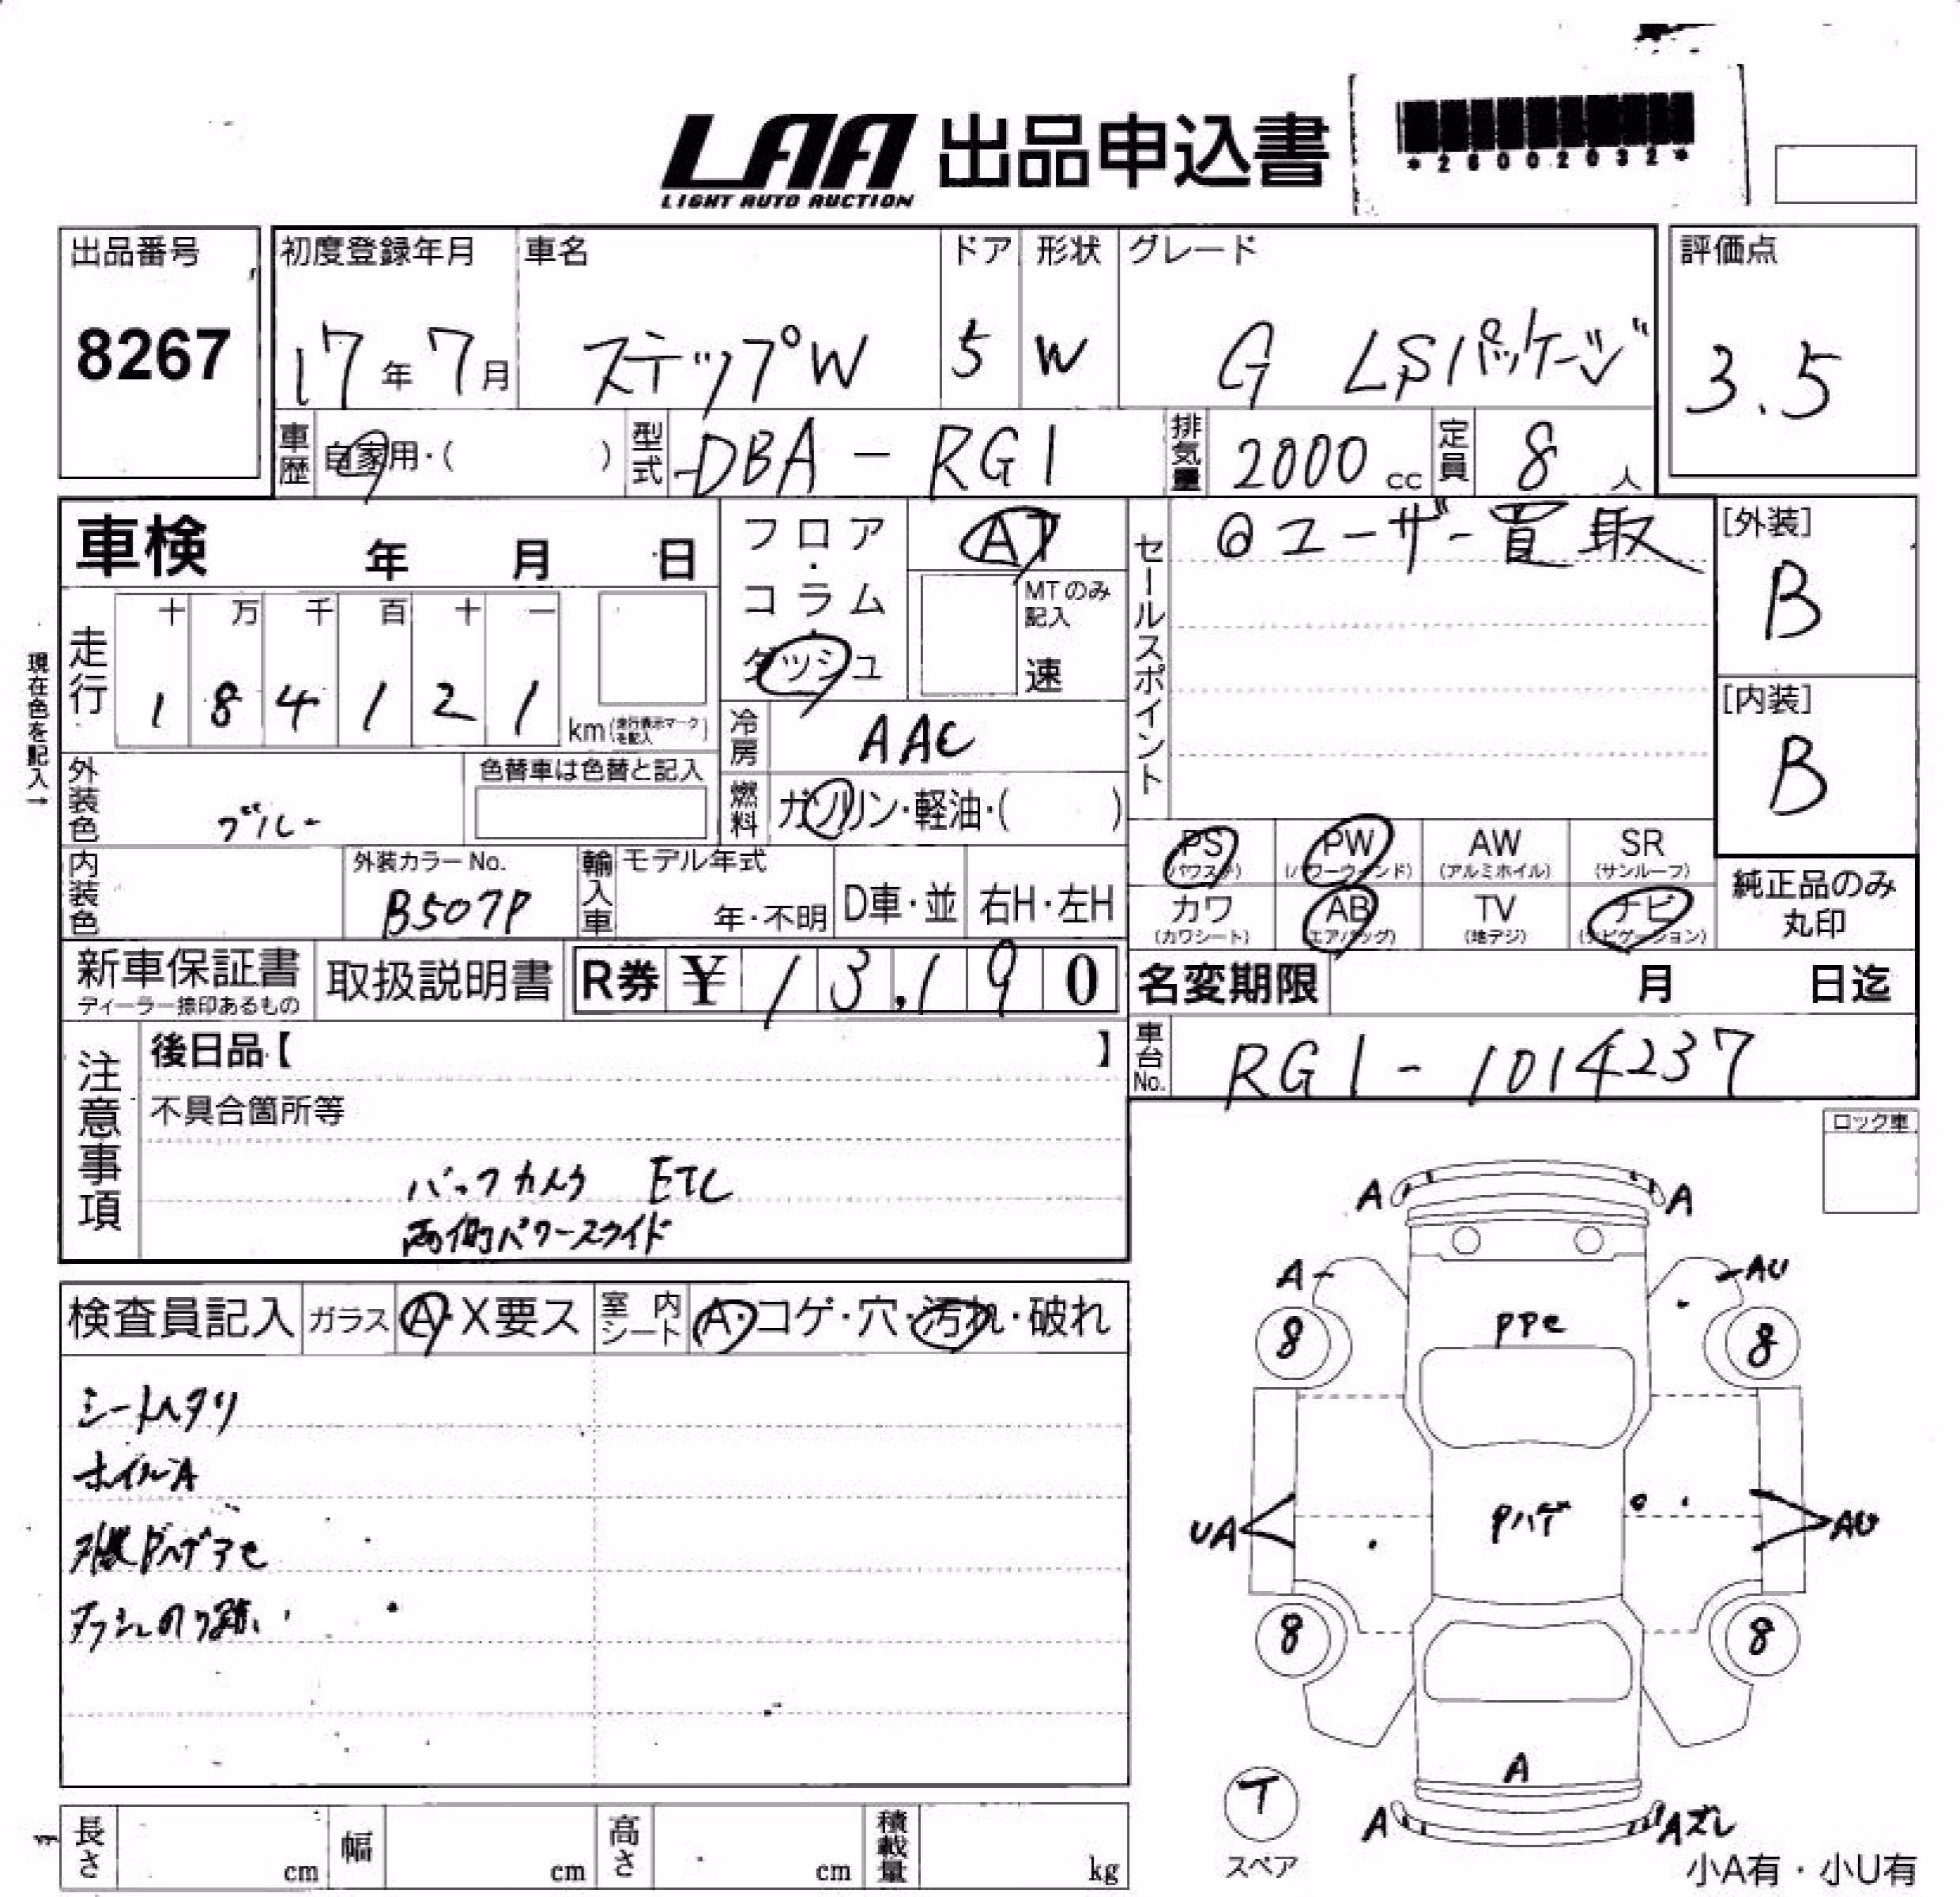 LAA 出品申込書
LIGHT AUTO AUCTION
*26002032*
出品番号
8267
初度登録年月
17年7月
車名
ステップW
ドア
5
形状
W
グレード
G LSパッケージ
評価点
3.5
車歴
自家用・( )
型式
DBA-RG1
排気量
2000cc
定員
8人
車検 年 月 日
フロア・コラム・ダッシュ
AT
MTのみ記入
速
セールスポイント
@ユーザー買取
[外装]
B
[内装]
B
現在色を記入→
走行
十 万 千 百 十 一
1 8 4 1 2 1
km(走行表示マークを記入)
冷房
AAC
燃料
ガソリン・軽油・( )
外装色
ブルー
色替車は色替と記入
内装色
外装カラーNo.
B507P
輸入車
モデル年式
年・不明
D車・並
右H・左H
PS (パワステ)
PW (パワーウィンド)
AW (アルミホイル)
SR (サンルーフ)
カワ (カワシート)
AB (エアバッグ)
TV (地デジ)
ナビ (ナビゲーション)
純正品のみ丸印
新車保証書
ディーラー捺印あるもの
取扱説明書
R券 ¥13,190
名変期限 月 日迄
車台No.
RG1-1014237
注意事項
後日品【 】
不具合箇所等
バックカメラ ETC
両側パワースライド
ロック車
検査員記入
ガラス
A・X要ス
室内シート
A・コゲ・穴・汚れ・破れ
シートヘタリ
ホイルA
A A
A AU
PPe
8 8
UA Pハゲ AU
8 8
A
T
スペア
A Aズレ
小A有・小U有
長さ cm
幅 cm
高さ cm
積載量 kg